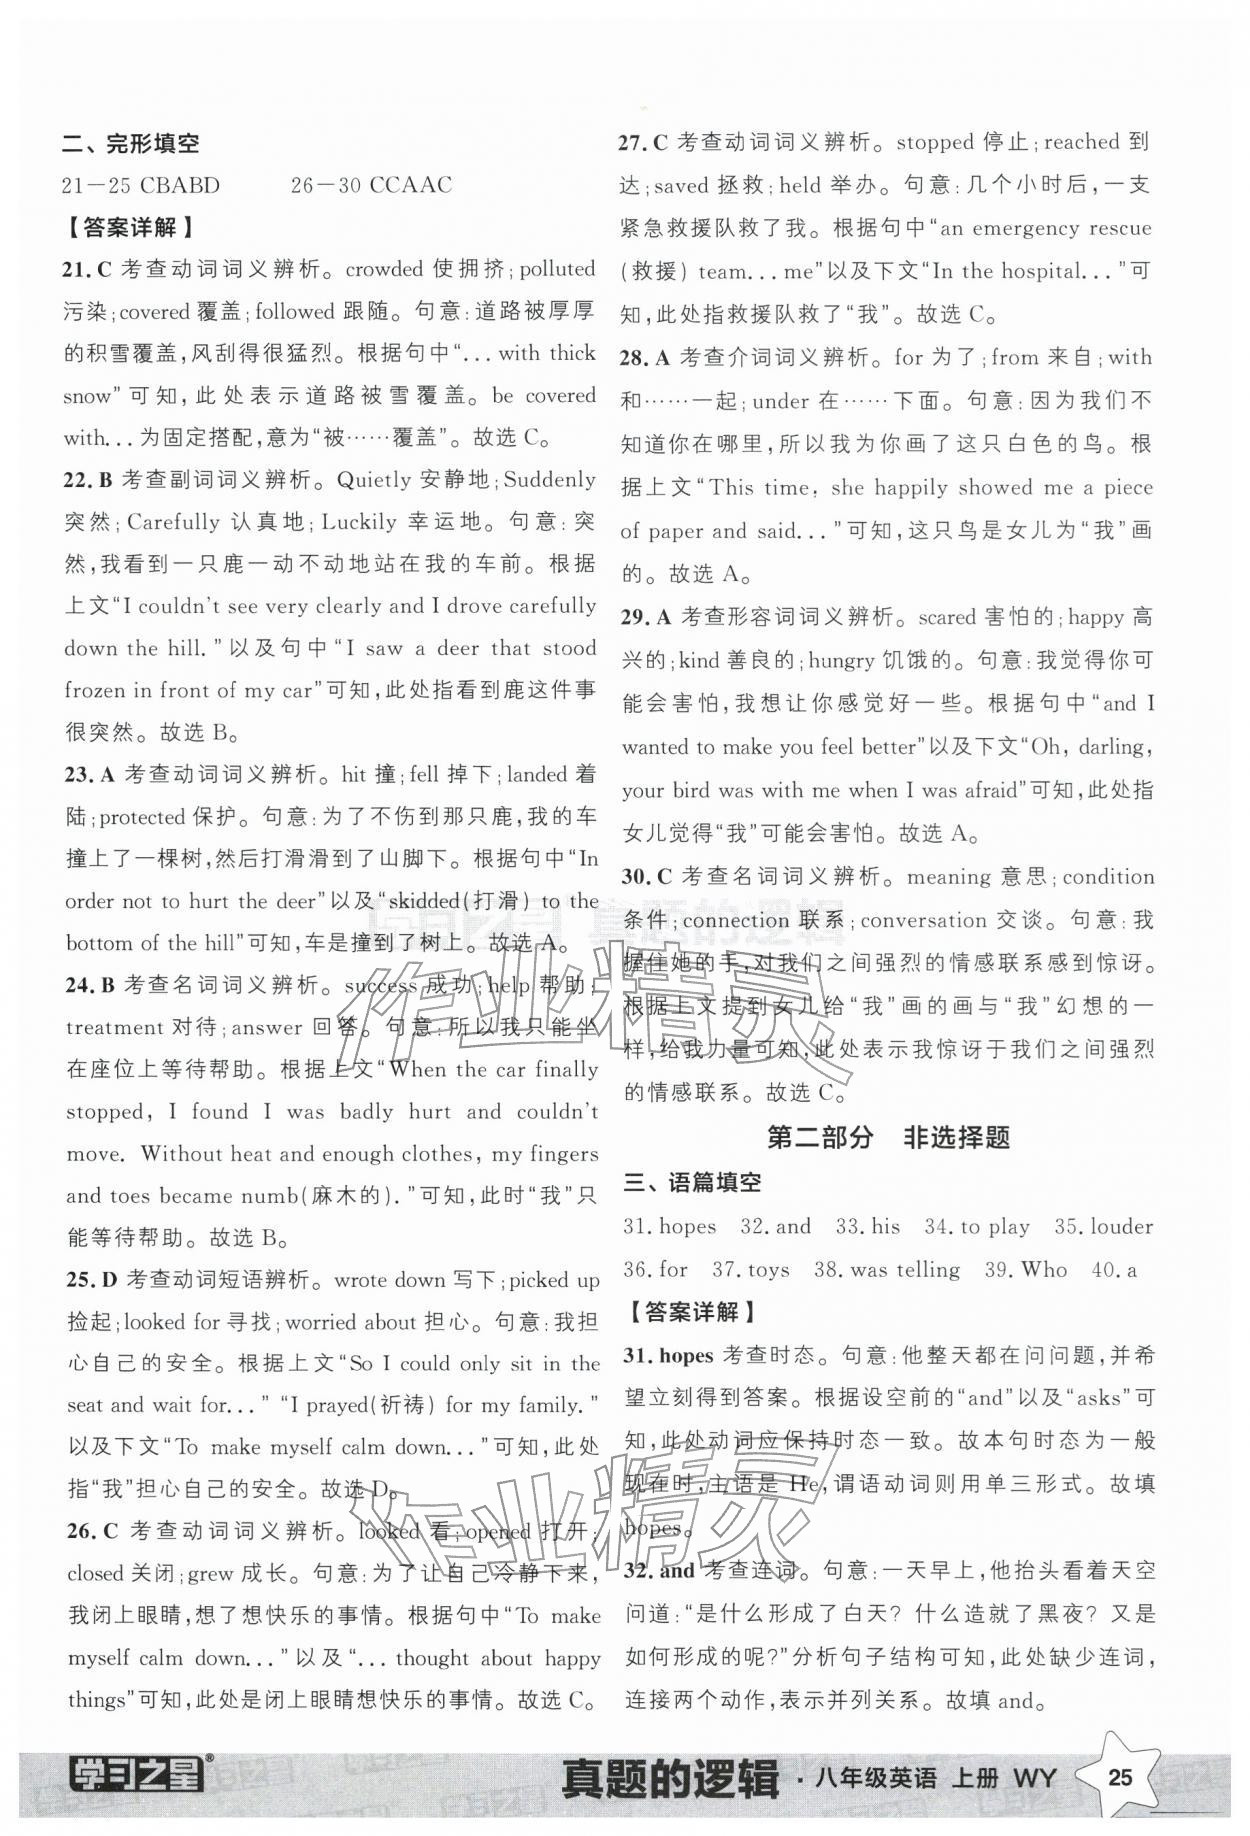 二、完形填空
21－25 CBABD　26－30 CCAAC
【答案详解】
21. C 考查动词词义辨析。crowded 使拥挤;polluted
污染;covered 覆盖;followed 跟随。句意:道路被厚厚
的积雪覆盖,风刮得很猛烈。根据句中“...with thick
snow”可知,此处表示道路被雪覆盖。be covered
with...为固定搭配,意为“被……覆盖”。故选 C。
22. B 考查副词词义辨析。Quietly 安静地;Suddenly
突然;Carefully 认真地;Luckily 幸运地。句意:突
然,我看到一只鹿一动不动地站在我的车前。根据
上文“I couldn't see very clearly and I drove carefully
down the hill.”以及句中“I saw a deer that stood
frozen in front of my car”可知,此处指看到鹿这件事
很突然。故选 B。
23. A 考查动词词义辨析。hit 撞;fell 掉下;landed 着
陆;protected 保护。句意:为了不伤到那只鹿,我的车
撞上了一棵树,然后打滑滑到了山脚下。根据句中“In
order not to hurt the deer”以及“skidded(打滑) to the
bottom of the hill”可知,车是撞到了树上。故选 A。
24. B 考查名词词义辨析。success 成功;help 帮助;
treatment 对待;answer 回答。句意:所以我只能坐
在座位上等待帮助。根据上文“When the car finally
stopped, I found I was badly hurt and couldn't
move. Without heat and enough clothes, my fingers
and toes became numb(麻木的).”可知,此时“我”只
能等待帮助。故选 B。
25. D 考查动词短语辨析。wrote down 写下;picked up
捡起;looked for 寻找;worried about 担心。句意:我担
心自己的安全。根据上文“So I could only sit in the
seat and wait for...” “I prayed(祈祷) for my family.”
以及下文“To make myself calm down...”可知,此处
指“我”担心自己的安全。故选 D。
26. C 考查动词词义辨析。looked 看;opened 打开;
closed 关闭;grew 成长。句意:为了让自己冷静下来,
我闭上眼睛,想了想快乐的事情。根据句中“To make
myself calm down...”以及“...thought about happy
things”可知,此处是闭上眼睛想快乐的事情。故选 C。
27. C 考查动词词义辨析。stopped 停止;reached 到
达;saved 拯救;held 举办。句意:几个小时后,一支
紧急救援队救了我。根据句中“an emergency rescue
(救援) team...me”以及下文“In the hospital...”可
知,此处指救援队救了“我”。故选 C。
28. A 考查介词词义辨析。for 为了;from 来自;with
和……一起;under 在……下面。句意:因为我们不
知道你在哪里,所以我为你画了这只白色的鸟。根
据上文“This time, she happily showed me a piece
of paper and said...”可知,这只鸟是女儿为“我”画
的。故选 A。
29. A 考查形容词词义辨析。scared 害怕的;happy 高
兴的;kind 善良的;hungry 饥饿的。句意:我觉得你可
能会害怕,我想让你感觉好一些。根据句中“and I
wanted to make you feel better”以及下文“Oh, darling,
your bird was with me when I was afraid”可知,此处指
女儿觉得“我”可能会害怕。故选 A。
30. C 考查名词词义辨析。meaning 意思;condition
条件;connection 联系;conversation 交谈。句意:我
握住她的手,对我们之间强烈的情感联系感到惊讶。
根据上文提到女儿给“我”画的画与“我”幻想的一
样,给我力量可知,此处表示我惊讶于我们之间强烈
的情感联系。故选 C。
第二部分　非选择题
三、语篇填空
31. hopes　32. and　33. his　34. to play　35. louder
36. for　37. toys　38. was telling　39. Who　40. a
【答案详解】
31. hopes 考查时态。句意:他整天都在问问题,并希
望立刻得到答案。根据设空前的“and”以及“asks”可
知,此处动词应保持时态一致。故本句时态为一般
现在时,主语是 He,谓语动词则用单三形式。故填
hopes。
32. and 考查连词。句意:一天早上,他抬头看着天空
问道:“是什么形成了白天? 什么造就了黑夜? 又是
如何形成的呢?”分析句子结构可知,此处缺少连词,
连接两个动作,表示并列关系。故填 and。
学习之星®
真题的逻辑 · 八年级英语 上册 WY
25
真题的逻辑
作业精灵
作业精灵